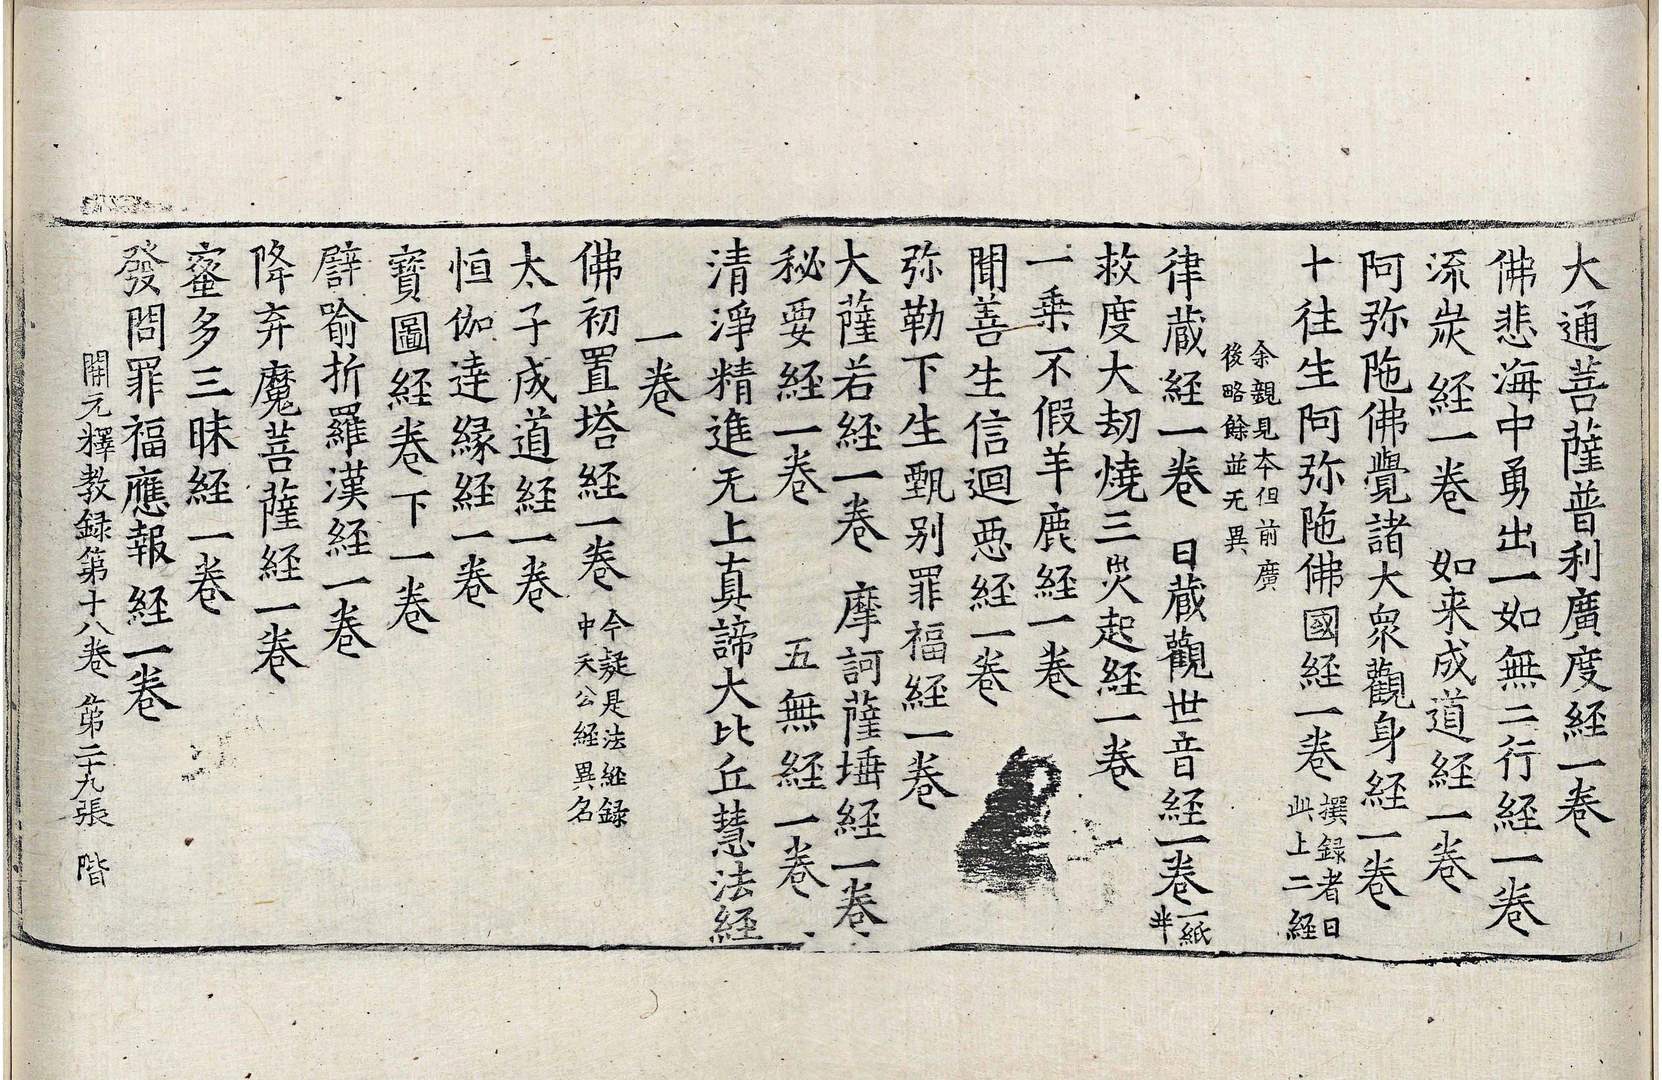 大通菩薩普利廣度経一卷
佛悲海中勇出一如無二行経一卷
流炭経一卷 如来成道経一卷
阿弥陁佛覺諸大衆觀身経一卷
十往生阿弥陁佛國経一卷 撰録者曰
此上二経
余親見本但前廣
後略餘並无異
律蔵経一卷 日蔵觀世音経一卷 一紙
半
救度大劫燒三災起経一卷
一乗不假羊鹿経一卷
聞善生信迴惡経一卷
弥勒下生甄别罪福経一卷
大薩若経一卷 摩訶薩埵経一卷
秘要経一卷 五無経一卷
清淨精進无上真諦大比丘慧法経
一卷
佛初置塔経一卷 今疑是法経録
中天公経異名
太子成道経一卷
恒伽達縁経一卷
寳圖経卷下一卷
譬喻折羅漢経一卷
降弃魔菩薩経一卷
蜜多三昧経一卷
發問罪福應報経一卷
開元釋教録第十八卷 第二十九張 階